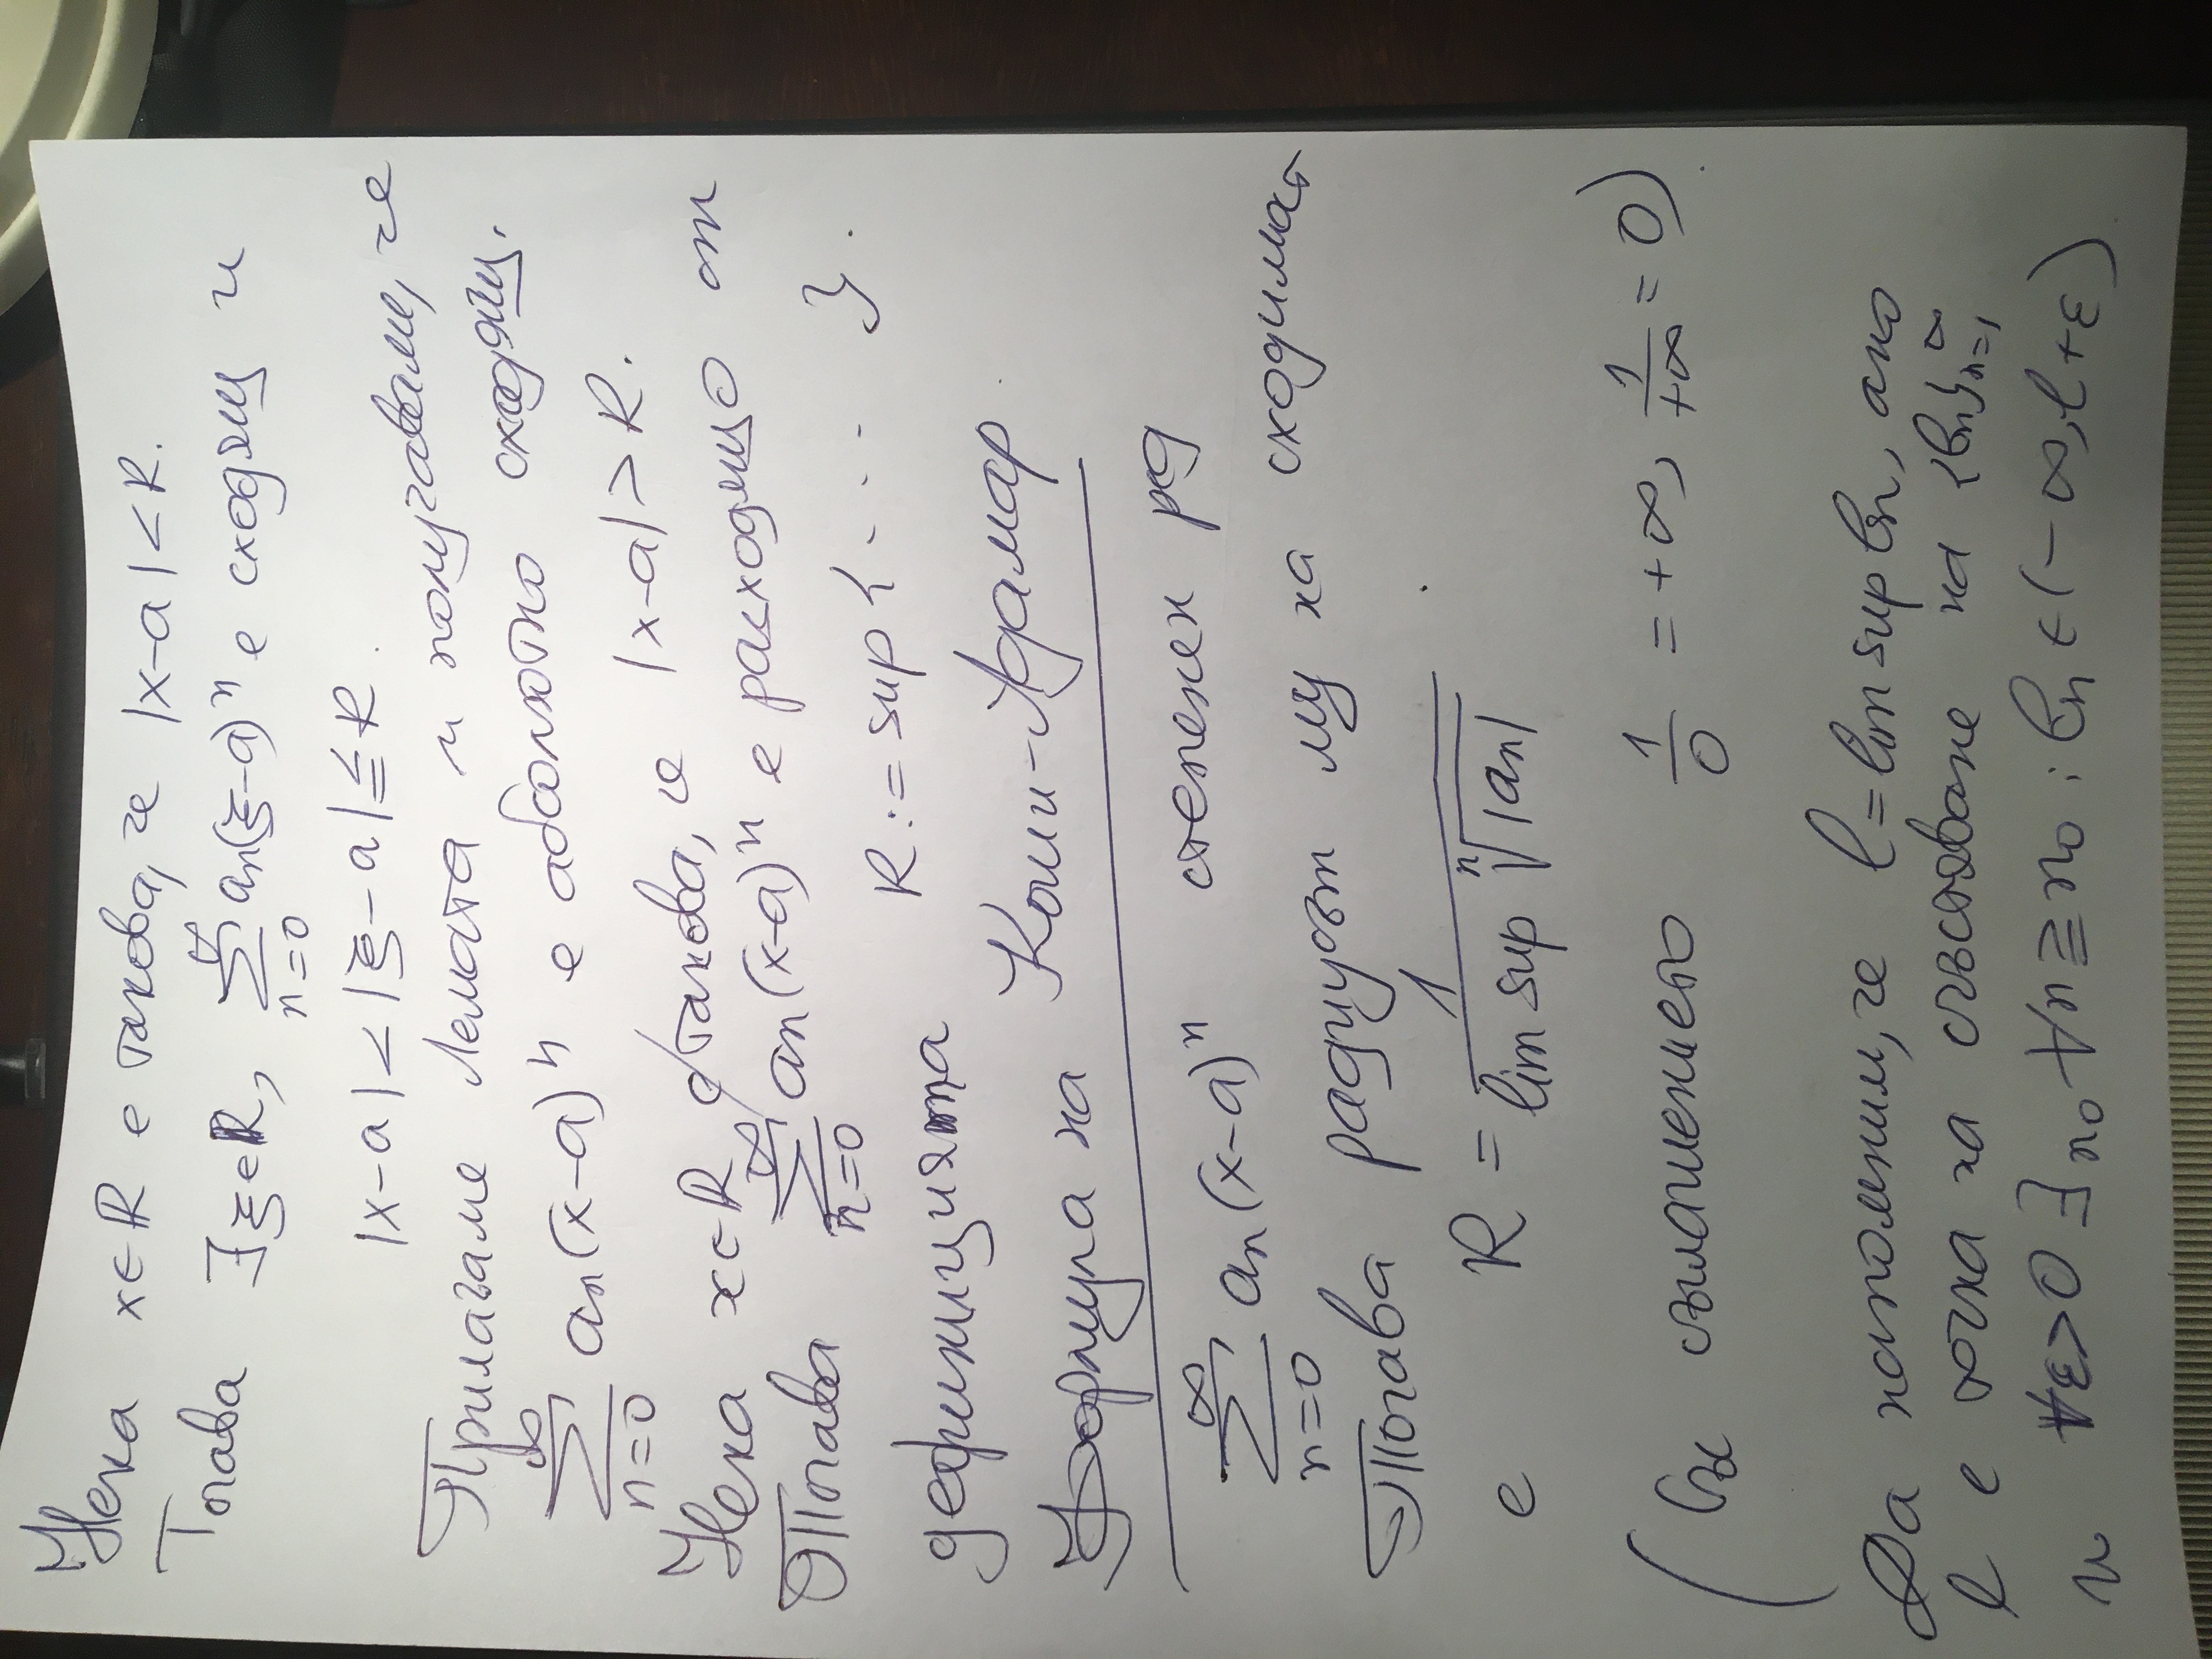 Нека x∈ℝ е такова, че |x-a|<R.
Тогава ∃ξ∈ℝ, ∑_{n=0}^{∞} a_n(ξ-a)^n е сходящ и
|x-a|<|ξ-a|≦R.
Прилагаме Лемата и получаваме, че
∑_{n=0}^{∞} a_n(x-a)^n е абсолютно сходящ.
Нека x∈ℝ е такова, че |x-a|>R.
Тогава ∑_{n=0}^{∞} a_n(x-a)^n е расходящ от
дефиницията R:=sup{.... }.
Формула на Коши-Адамар
∑_{n=0}^{∞} a_n(x-a)^n степенен ред
Тогава радиусът му на сходимост
е R = 1/(lim sup ⁿ√|a_n|).
(Със съглашението 1/0 = +∞, 1/+∞ = 0).
Да напомним, че l=lim sup b_n, ако
l е точка на сгъстяване на {b_n}_{n=1}^{∞}
и ∀ε>0 ∃n₀ ∀n≧n₀ : b_n∈(-∞,l+ε).